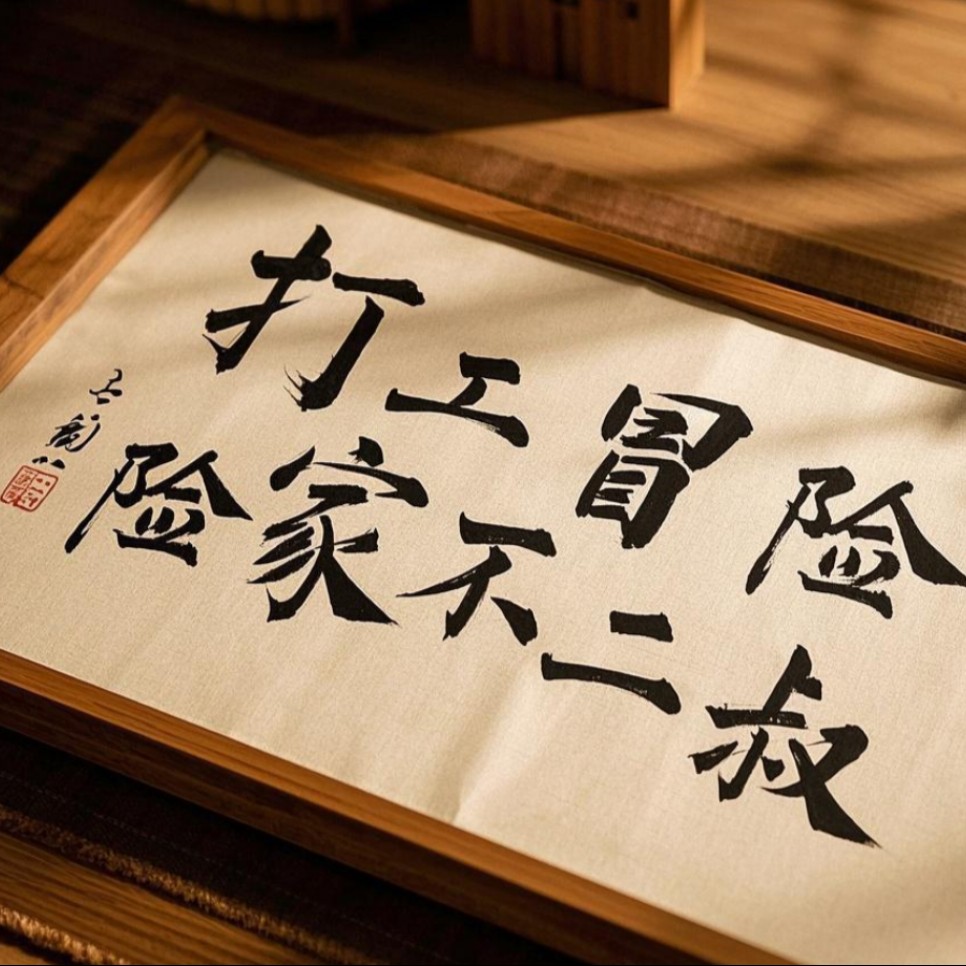 打工冒险
险家不二叔